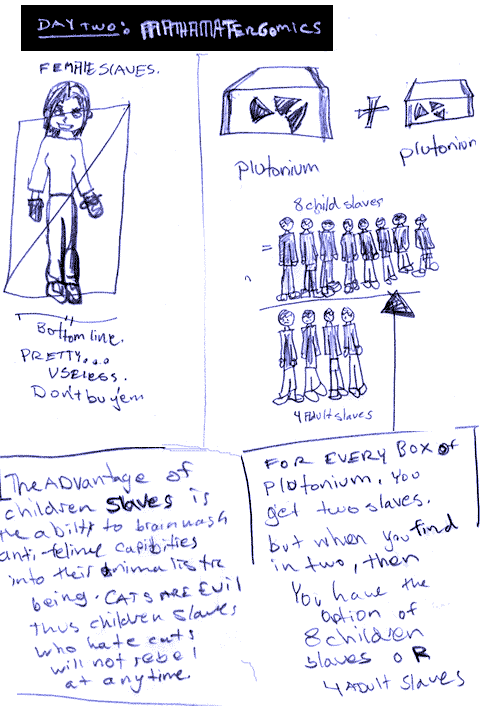 DAY TWO: MATHAMATERGOMICS
FEMALE SLAVES.
Bottom line.
PRETTY...
USELESS.
Don't buy'em
plutonium
plutonium
8 child slaves
=
4 Adult slaves
The ADvantage of
children Slaves is
the ability to brainwash
anti-feline
into their
being. CATS ARE EVIL
thus children slaves
who hate cats
will not rebel
at anytime.
FOR EVERY BOX of
plutonium, you
get two slaves.
but when you find
in two, then
You have the
option of
8 children
slaves OR
4 ADult slaves